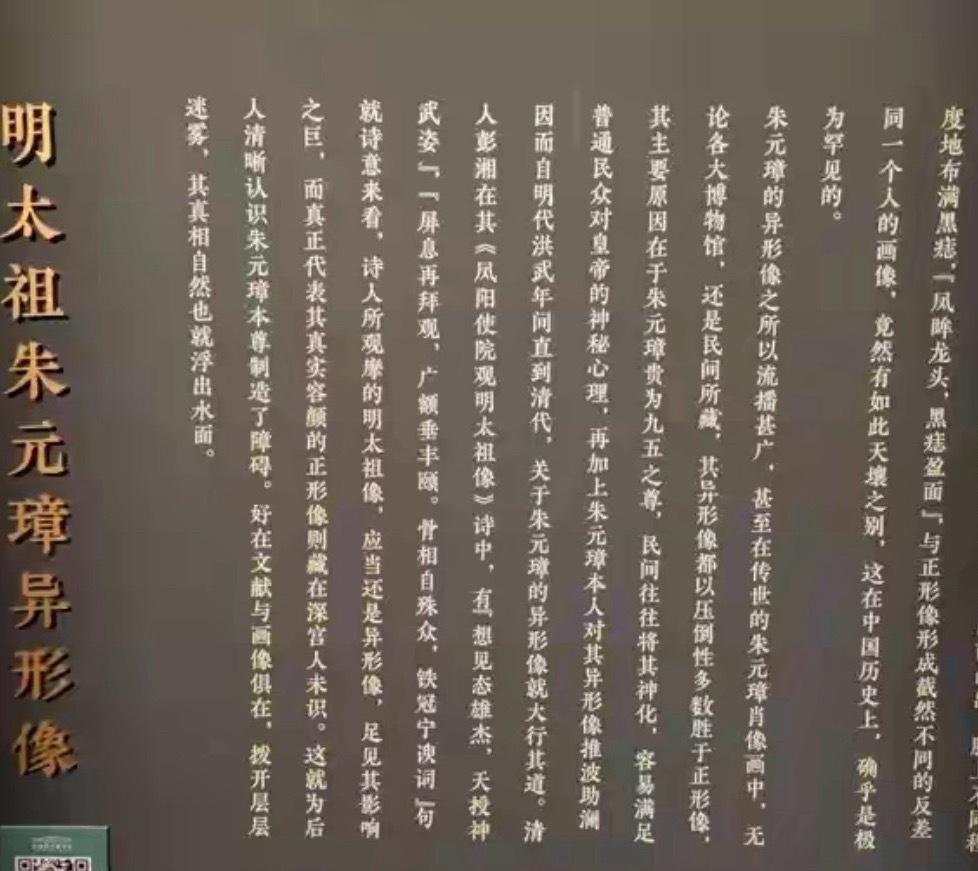 度地布满黑痣,『凤眸龙头,黑痣盈面』,与正形像形成截然不同的反差
同一个人的画像,竟然有如此天壤之别,这在中国历史上,确乎是极
为罕见的。
朱元璋的异形像之所以流播甚广,甚至在传世的朱元璋肖像画中,无
论各大博物馆,还是民间所藏,其异形像都以压倒性多数胜于正形像,
其主要原因在于朱元璋贵为九五之尊,民间往往将其神化,容易满足
普通民众对皇帝的神秘心理,再加上朱元璋本人对其异形像推波助澜
因而自明代洪武年间直到清代,关于朱元璋的异形像就大行其道。清
人彭湘在其《凤阳使院观明太祖像》诗中,有『想见态雄杰,天授神
武姿』,『屏息再拜观,广额垂丰颐。骨相自殊众,铁冠宁谀词』句
就诗意来看,诗人所观摩的明太祖像,应当还是异形像,足见其影响
之巨,而真正代表其真实容颜的正形像则藏在深宫人未识。这就为后
人清晰认识朱元璋本尊制造了障碍。好在文献与画像俱在,拨开层层
迷雾,其真相自然也就浮出水面。
明太祖朱元璋异形像